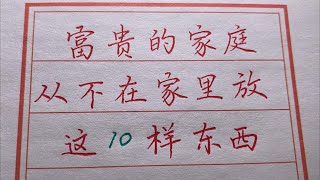 富贵的家庭
从不在家里放
这10样东西